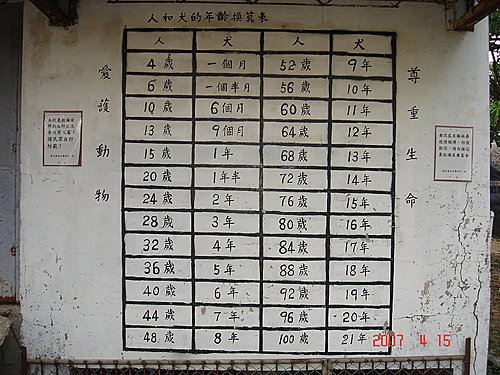 人和犬的年齡換算表
人 犬 人 犬
4歲 一個月 52歲 9年
6歲 一個半月 56歲 10年
10歲 6個月 60歲 11年
13歲 9個月 64歲 12年
15歲 1年 68歲 13年
20歲 1年半 72歲 14年
24歲 2年 76歲 15年
28歲 3年 80歲 16年
32歲 4年 84歲 17年
36歲 5年 88歲 18年
40歲 6年 92歲 19年
44歲 7年 96歲 20年
48歲 8年 100歲 21年
愛護動物
尊重生命
2007 4 15